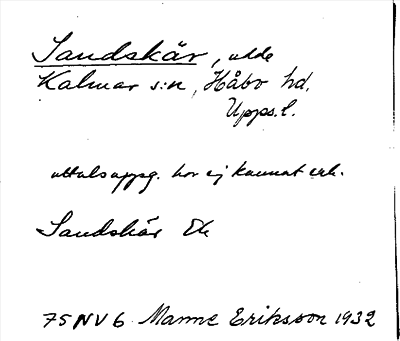 Sandskär, udde
Kalmar s:n, Håbo hd.
Upps. l.
uttalsuppg. har ej kunnat erh.
Sandskär Ek
75 NV 6 Manne Eriksson 1932